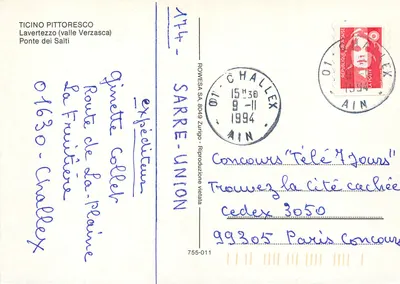 TICINO PITTORESCO
Lavertezzo (valle Verzasca)
Ponte dei Salti
174 - SARRE-UNION
expéditeur
Ginette Collet
Route de La Plaine
La Fruitière
01630 - Challex
ROWESA SA, 8049 Zurigo - Riproduzione vietata
755-011
01 - CHALLEX
15H38
9 - 11
1994
AIN
01 - CHALLEX
1994
AIN
Concours "Télé 7 Jours"
Trouvez la cité cachée
Cedex 3050
99305 Paris Concours